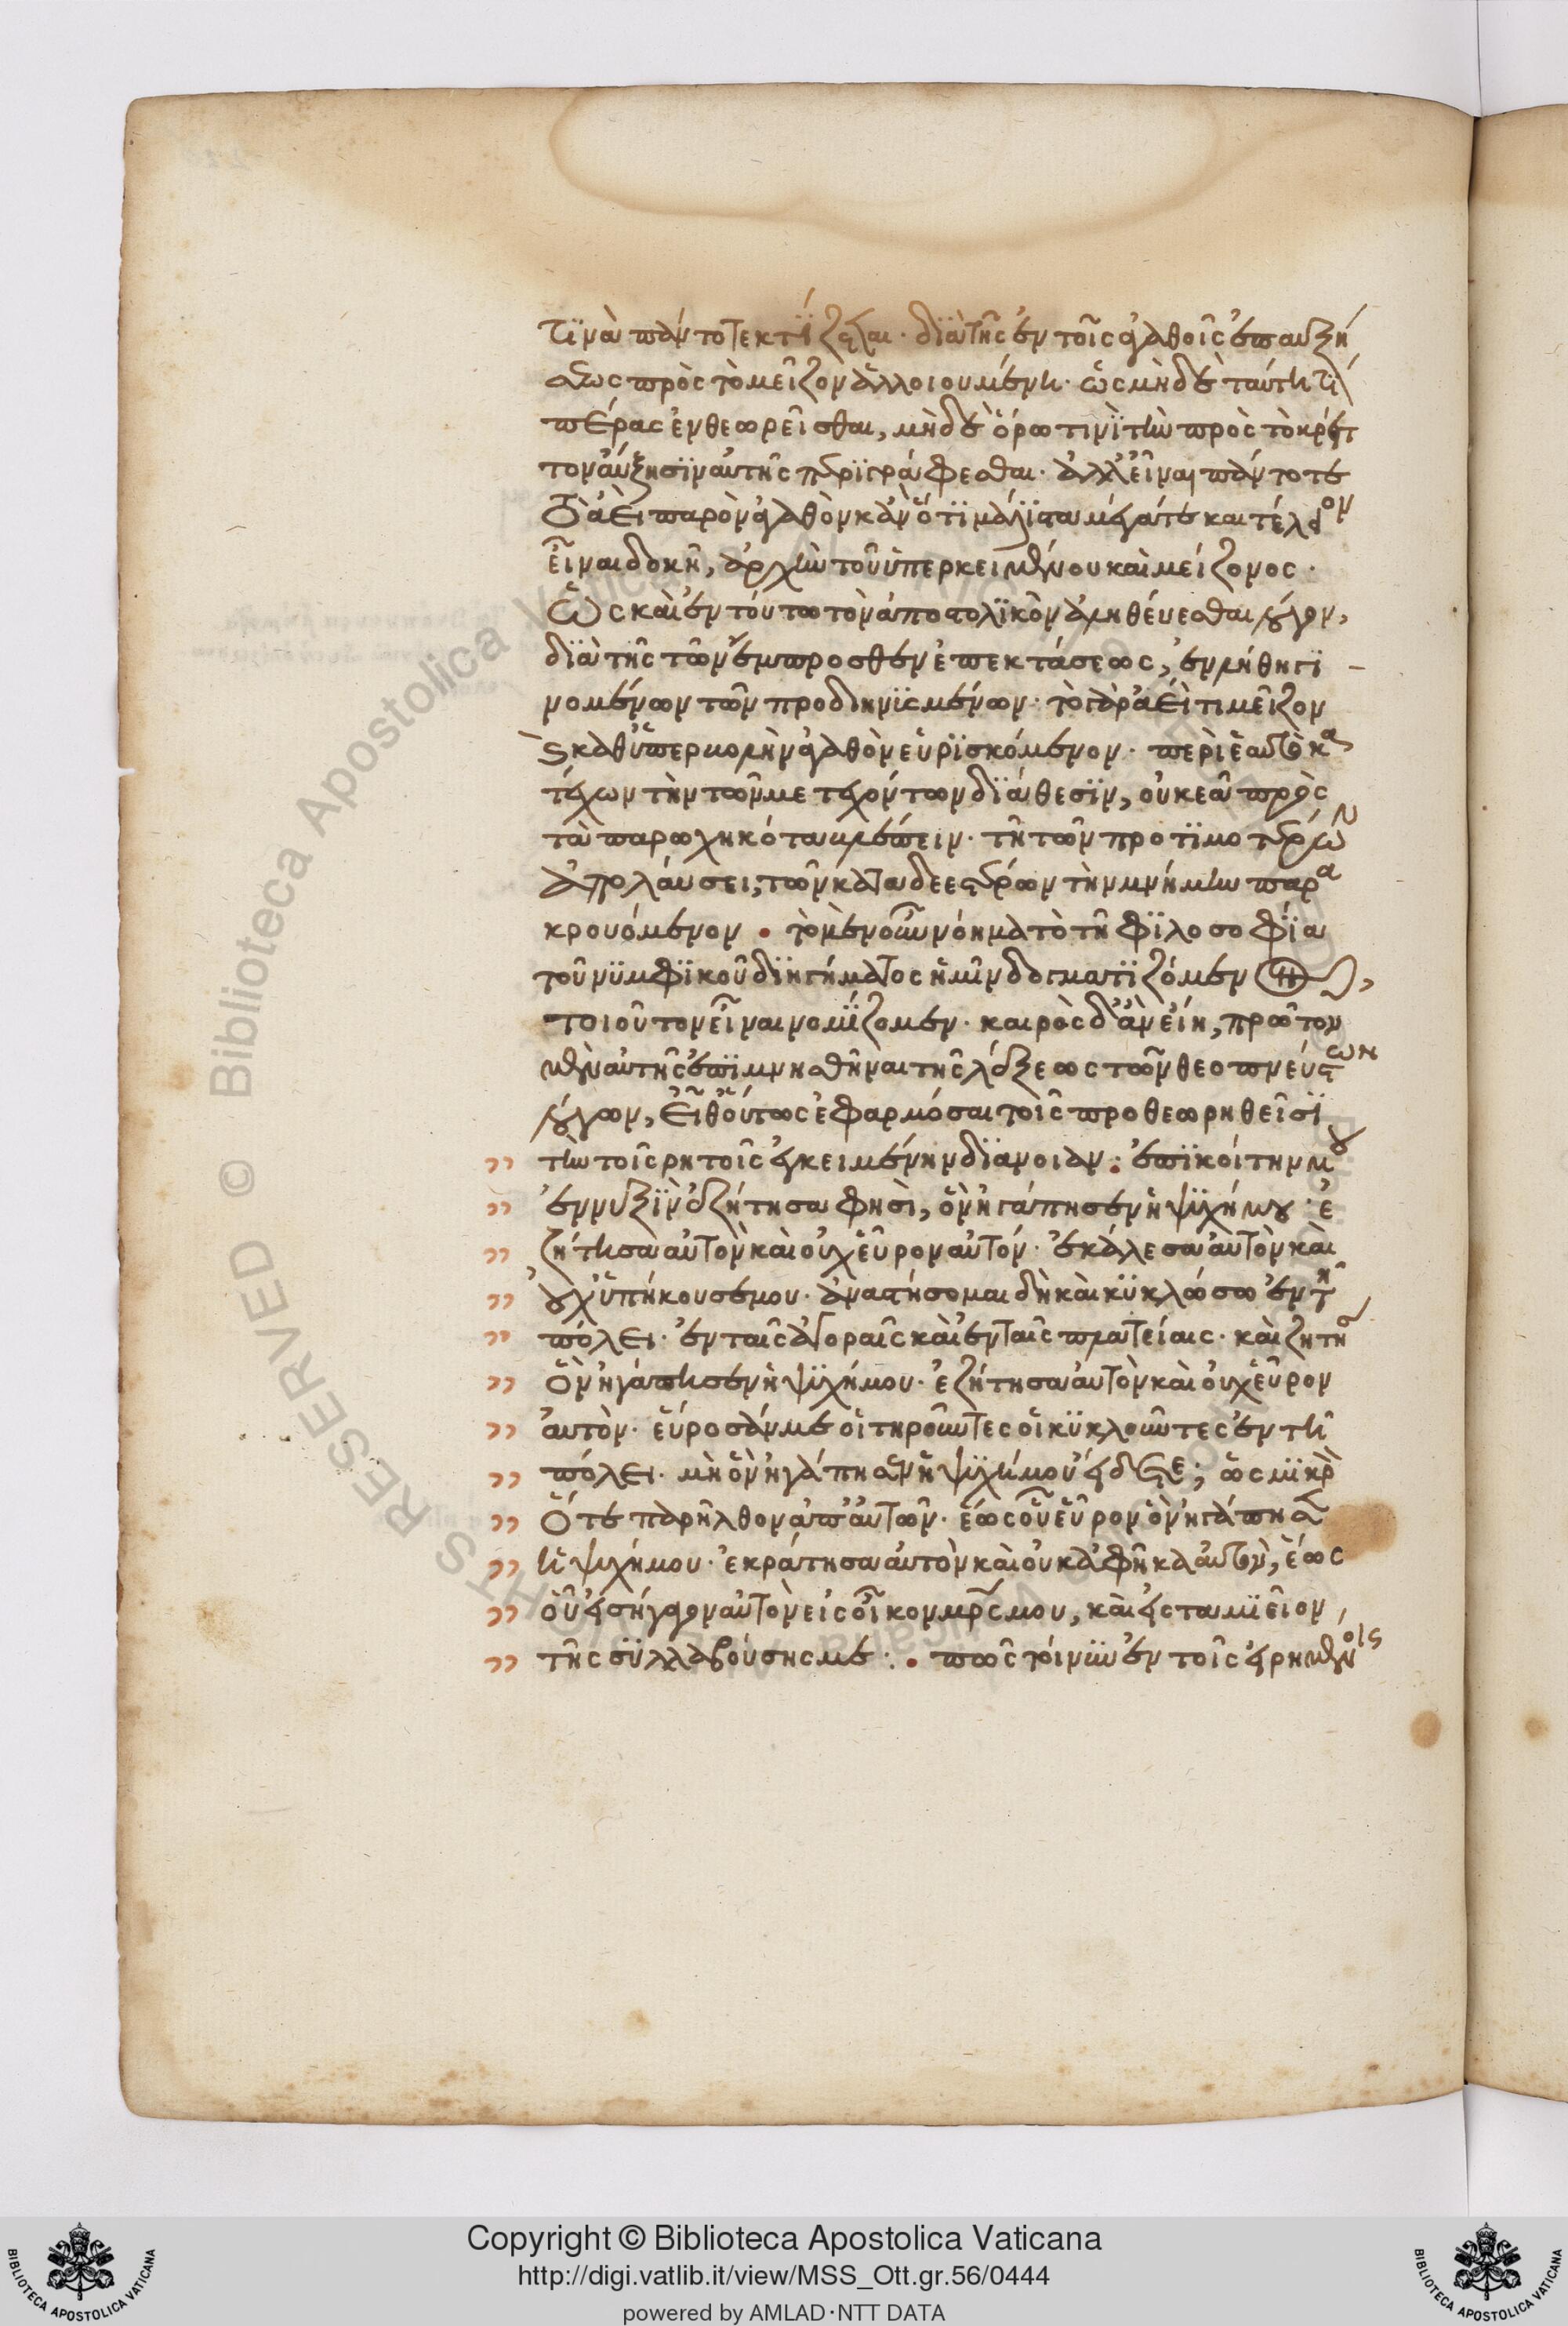 τινὰ πάντοτε κτίζεται· διὰ τῆς ἐν τοῖς ἀγαθοῖς ἐπαυξή
σεως πρὸς τὸ μεῖζον ἀλλοιουμένη· ὡς μηδὲ ταύτη τι
πέρας ἐνθεωρεῖσθαι, μηδὲ ὅρω τινὶ τὴν πρὸς τὸ κρεῖτ
τον αὔξησιν αὐτῆς περιγράφεσθαι· ἀλλ' εἶναι πάντοτε
τὸ ἀεὶ παρὸν ἀγαθὸν κἂν ὅτι μάλιστα μέγα τε καὶ τέλειον
εἶναι δοκῆ, ἀρχὴν τοῦ ὑπερκειμένου καὶ μείζονος·
Ὡς καὶ ἐν τούτω τὸν ἀποστολικὸν ἀληθεύεσθαι λόγον,
διὰ τῆς τῶν ἔμπροσθεν ἐπεκτάσεως, ἐν λήθη γι
νομένων τῶν προδιηνισμένων· τὸ γὰρ ἀεὶ τι μεῖζον
καὶ καθ' ὑπερβολὴν ἀγαθὸν εὑρισκόμενον· περὶ ἑαυτὸ κα
τέχων τὴν τῶν μετεχόντων διάθεσιν, οὐκ ἐᾶ πρὸς
τὰ παρωχηκότα βλέπειν· τῆ τῶν προτιμοτέρων
ἀπολαύσει, τῶν καταδεεστέρων τὴν μνήμην παρα
κρουόμενον • τὸ μὲν οὖν νόημα τὸ τῆ φιλοσοφία
τοῦ νυμφικοῦ διηγήματος ἡμῖν δογματιζόμενον,
τοιοῦτον εἶναι νομίζομεν· καιρὸς δ' ἂν εἴη, πρῶτον
μὲν αὐτῆς ἐπιμνησθῆναι τῆς λέξεως τῶν θεοπνεύστων
λόγων, εἶθ' οὕτως ἐφαρμόσαι τοῖς προθεωρηθεῖσι
" τὴν τοῖς ρητοῖς ἐγκειμένην διάνοιαν: ἐπὶ κοίτην μου
" ἐν νυξὶν ἐζήτησα φησὶ, ὃν ἠγάπησεν ἡ ψυχή μου· ἐ
" ζήτησα αὐτὸν καὶ οὐχ εὗρον αὐτόν· ἐκάλεσα αὐτὸν καὶ
" οὐχ ὑπήκουσέ μου· ἀναστήσομαι δὴ καὶ κυκλώσω ἐν τῆ
" πόλει· ἐν ταῖς ἀγοραῖς καὶ ἐν ταῖς πλατείαις· καὶ ζητήσω
" ὃν ἠγάπησεν ἡ ψυχή μου· ἐζήτησα αὐτὸν καὶ οὐχ εὗρον
" αὐτὸν· εὕροσάν με οἱ τηροῦντες οἱ κυκλοῦντες ἐν τῆ
" πόλει· μὴ ὃν ἠγάπησεν ἡ ψυχή μου εἴδετε; ὡς μικρὸ
" ὅτε παρῆλθον ἀπ' αὐτῶν· ἕως οὗ εὗρον ὃν ἠγάπησεν
" ἡ ψυχή μου· ἐκράτησα αὐτὸν καὶ οὐκ ἀφῆκα αὐτὸν, ἕως
" οὗ εἰσήγαγον αὐτὸν εἰς οἶκον μρς μου, καὶ εἰς ταμιεῖον,
" τῆς συλλαβούσης με:• πῶς τοίνυν ἐν τοῖς εἰρημένοις
Copyright © Biblioteca Apostolica Vaticana
http://digi.vatlib.it/view/MSS_Ott.gr.56/0444
powered by AMLAD·NTT DATA